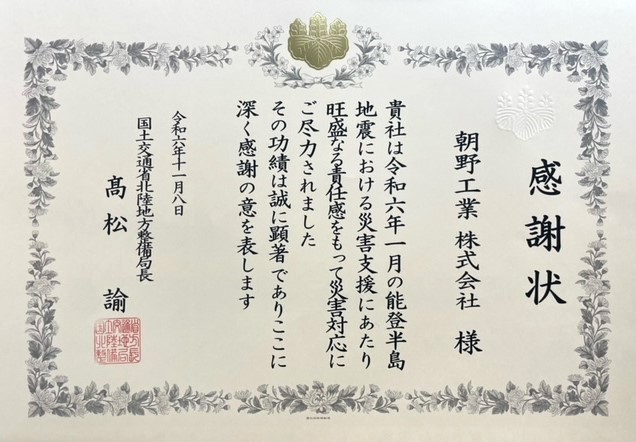 感謝状
朝野工業 株式会社 様
貴社は令和六年一月の能登半島
地震における災害支援にあたり
旺盛なる責任感をもって災害対応に
ご尽力されました
その功績は誠に顕著でありここに
深く感謝の意を表します
令和六年十一月八日
国土交通省北陸地方整備局長
髙松 諭